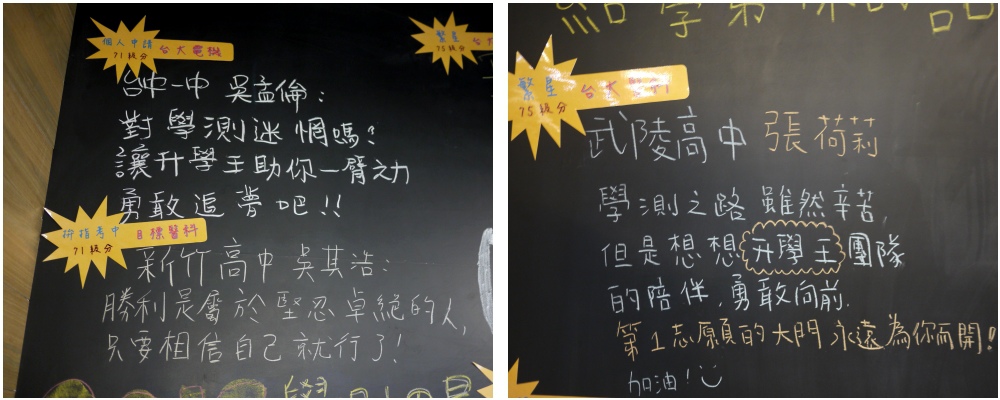 個人申請
71級分
台大電機
繁星
75級分
台中一中 吳孟倫:
對學測迷惘嗎?
讓升學王助你一臂之力
勇敢追夢吧!!
拚指考中
71級分
目標醫科
新竹高中 吳其浩:
勝利是屬於堅忍卓絕的人,
只要相信自己就行了!
繁星
75級分
台大醫科
武陵高中 張荷莉
學測之路 雖然辛苦,
但是想想升學王團隊
的陪伴,勇敢向前.
第1志願的大門永遠為你而開!
加油!